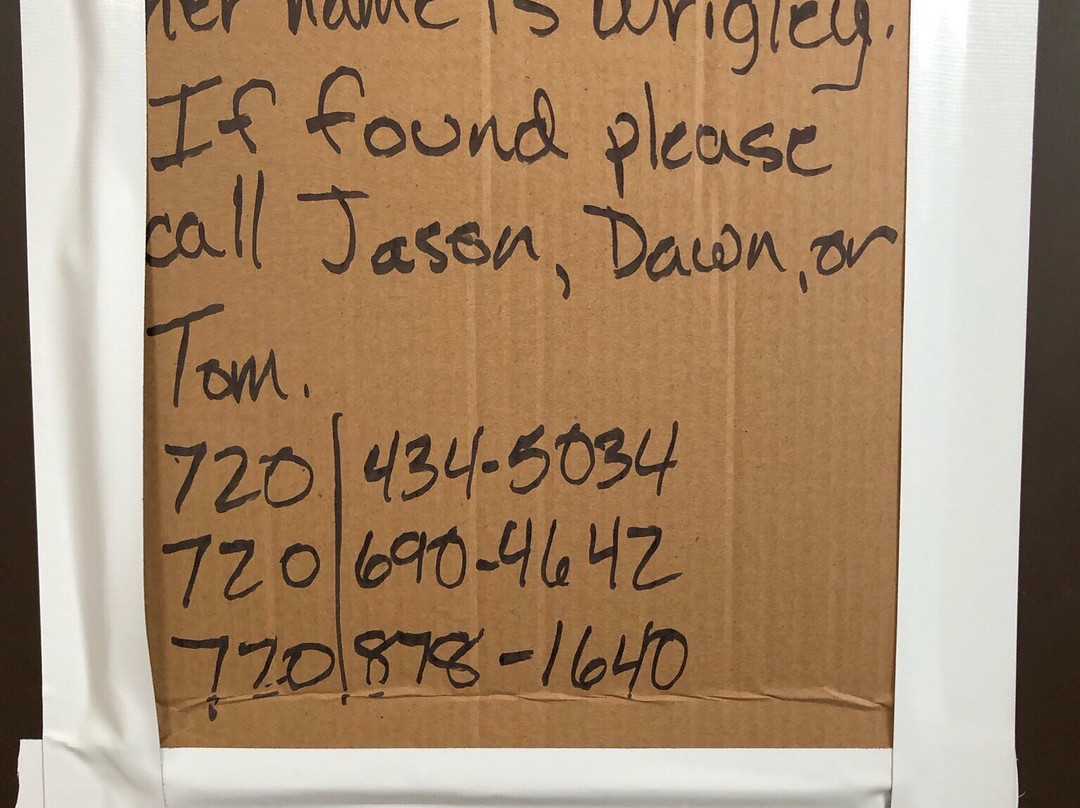 her name is Wrigley.
If found please
call Jason, Dawn, or
Tom.
720 | 434-5034
720 | 690-4642
770 | 878-1640